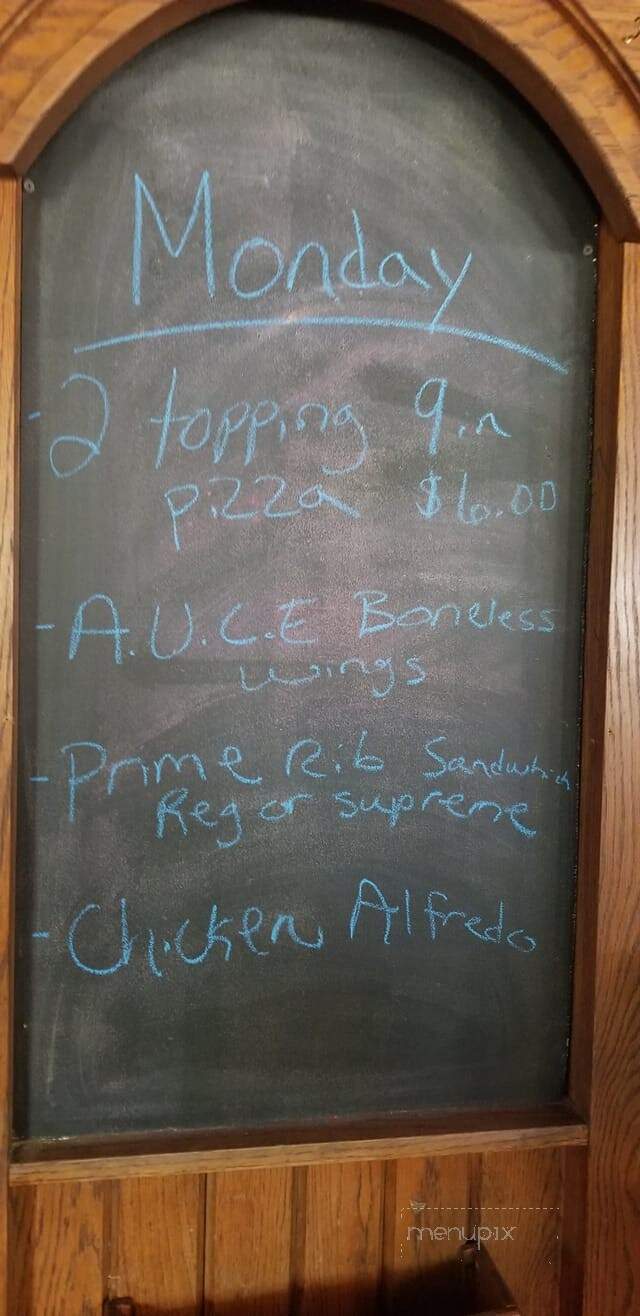 Monday
- 2 topping 9in
pizza $6.00
- A.U.C.E Boneless
wings
- Prime Rib Sandwhich
Reg or supreme
- Chicken Alfredo
menupix